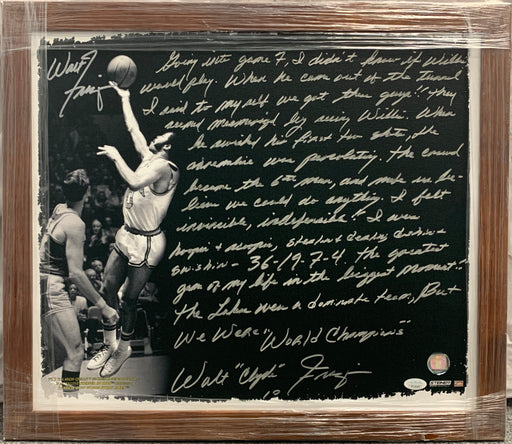 Walt
Frazier
Going into game 7, I didn't know if Willis
would play. When he came out of the tunnel
I said to my self we got these guys!! They
seemed mesmerized by seeing Willis. When
he swished his first two shots, the
adrenaline was percolating. The crowd
became the 6th man, and made us be-
lieve we could do anything. I felt
invincible, indefensible!! I was
hoopin & scoopin, stealin & dealing, dishin &
swishin - 36-19-7-4. The greatest
game of my life in the biggest moment!!
The Lakers were a dominate team, But
We Were "World Champions"
Walt "Clyde" Frazier
10
STEINER